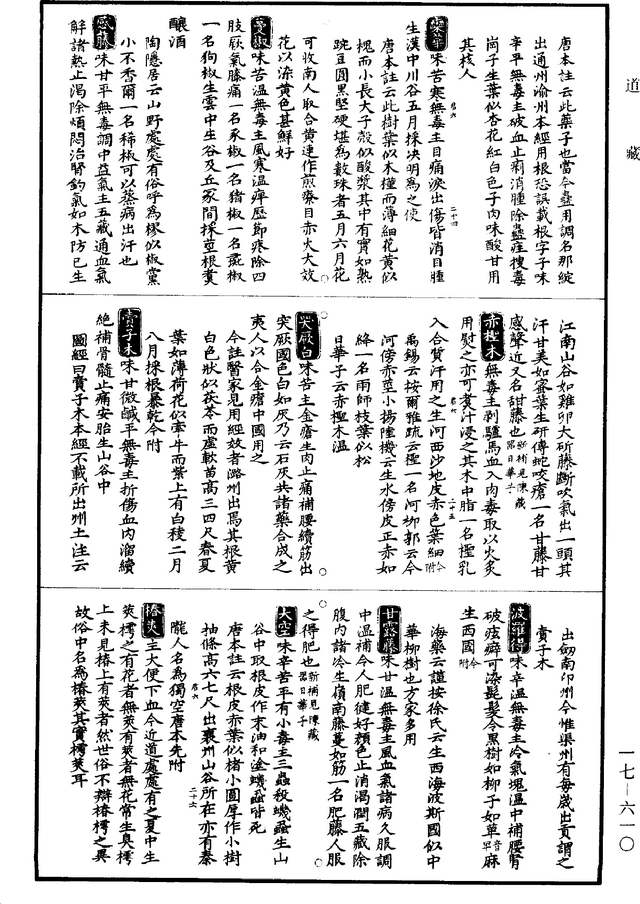 道藏
唐本註云此藥子也當今蠱用調名那綻
出通州渝州本經用根恐誤載根字子味
辛平無毒主破血止痢消腫除蠱疰蛇毒
崗子生葉似杏花紅白色子肉味酸甘用
其核人
欒華味苦寒無毒主目痛淚出傷眥消目腫
生漢中川谷五月採決明為之使
唐本註云此樹葉似木槿而薄細花黃似
槐而小長大子殼似酸漿其中有實如熟
豌豆圓黑堅硬堪為數珠者五月六月花
可收南人取合黃連作煎療目赤火大效
花以染黃色甚鮮好
蔓椒味苦溫無毒主風寒濕痺歷節疼除四
肢厥氣膝痛一名豕椒一名猪椒一名彘椒
一名狗椒生雲中生谷及丘冢間採莖根煮
釀酒
陶隱居云山野處處有俗呼為樛似椒薰
小不香爾一名豨椒可以蒸病出汗也
感藤味甘平無毒調中益氣主五藏通血氣
解諸熱止渴除煩悶治腎釣氣如木防已生
江南山谷如雞卵大斫藤斷吹氣出一頭其
汗甘美如蜜葉生研傅蛇咬瘡一名甘藤甘
感聲近又名甜藤也新補見陳藏器日華子
赤檉木無毒主剝驢馬血入肉毒取以火炙
用熨之亦可煮汁浸之其木中脂一名檉乳
入合質汗用之生河西沙地皮赤色葉細今附
禹錫云按爾雅疏云檉一名河柳郭云今
河傍赤莖小楊陸機云生水傍皮正赤如
絳一名雨師枝葉似松
日華子云赤檉木溫
突厥白味苦主金瘡生肉止痛補腰續筋出
突厥國色白如灰乃云石灰共諸藥合成之
夷人以合金瘡中國用之
今註醫家見用經效者潞州出焉其根黃
白色狀似茯苓而虛軟苗高三四尺春夏
葉如薄荷花似牽牛而紫上有白稜二月
八月採根暴乾今附
賣子木味甘微鹹平無毒主折傷血內溜續
絕補骨髓止痛安胎生山谷中
圖經曰賣子木本經不載所出州土注云
出劒南邛州今惟渠州有每歲出貢謂之
賣子木
婆羅得味辛溫無毒主冷氣塊溫中補腰腎
破痃癖可染髭髮令黑樹如柳子如萆音卑麻
生西國今附
海藥云謹按徐氏云生西海波斯國似中
華柳樹也方家多用
甘露藤味甘溫無毒主風血氣諸病久服調
中溫補令人肥健好顏色止消渴潤五藏除
腹內諸冷生嶺南藤蔓如筋一名肥藤人服
之得肥也新補見陳藏器日華子
大空味辛苦平有小毒主三蟲殺蟣蝨生山
谷中取根皮作末油和塗蟣蝨皆死
唐本註云根皮赤葉似楮小圓厚作小樹
抽條高六七尺出襄州山谷所在亦有秦
隴人名為獨空唐本先附
椿莢主大便下血今近道處處有之夏中生
莢樗之有花者無莢有莢者無花常生臭樗
上未見椿上有莢者然世俗不辯椿樗之異
故俗中名為椿莢其實樗莢耳
一七—六一〇